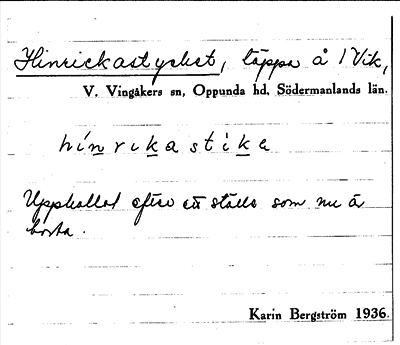 Hinrickastycket, täppa å 1 Vik,
V. Vingåkers sn, Oppunda hd, Södermanlands län.
hínrikastìke
Uppkallat efter ett ställe som nu är
borta.
Karin Bergström 1936.